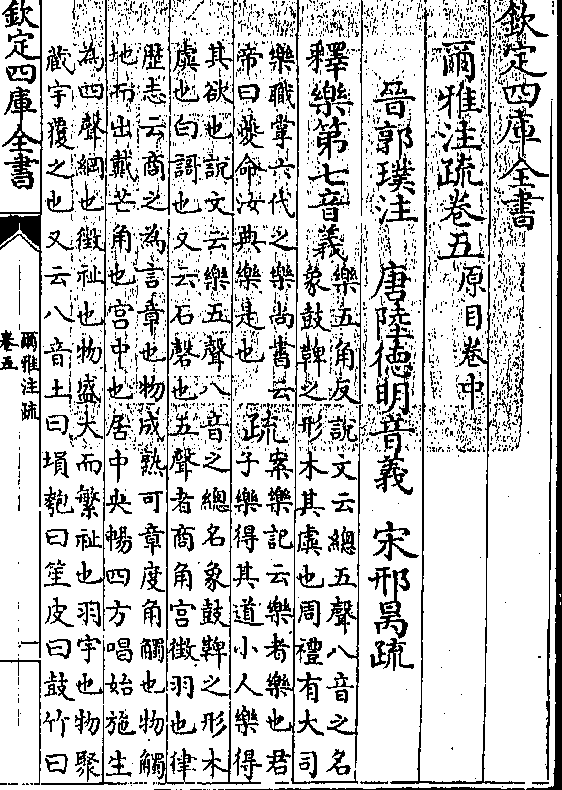 欽定四庫全書
爾雅注疏卷五 原目卷中
晉郭璞注 唐陸徳明音義 宋邢昺疏
釋樂第七音義
樂五角反說文云總五聲八音之名
象鼓鞞之形木其虡也周禮有大司
樂職掌六代之樂尚書云
帝曰夔命汝典樂是也
疏
案樂記云樂者樂也君
子樂得其道小人樂得
其欲也說文云樂五聲八音之總名象鼓鞞之形木
虡也白謌也又云石磬也五聲者商角宮徵羽也律
歴志云商之為言章也物成熟可章度角觸也物觸
地而出戴芒角也宫中也居中央暢四方唱始施生
為四聲綱也徵祉也物盛大而繁祉也羽宇也物聚
藏宇覆之也又云八音土曰塤匏曰笙皮曰鼓竹曰
欽定四庫全書
爾雅注疏
卷五
一